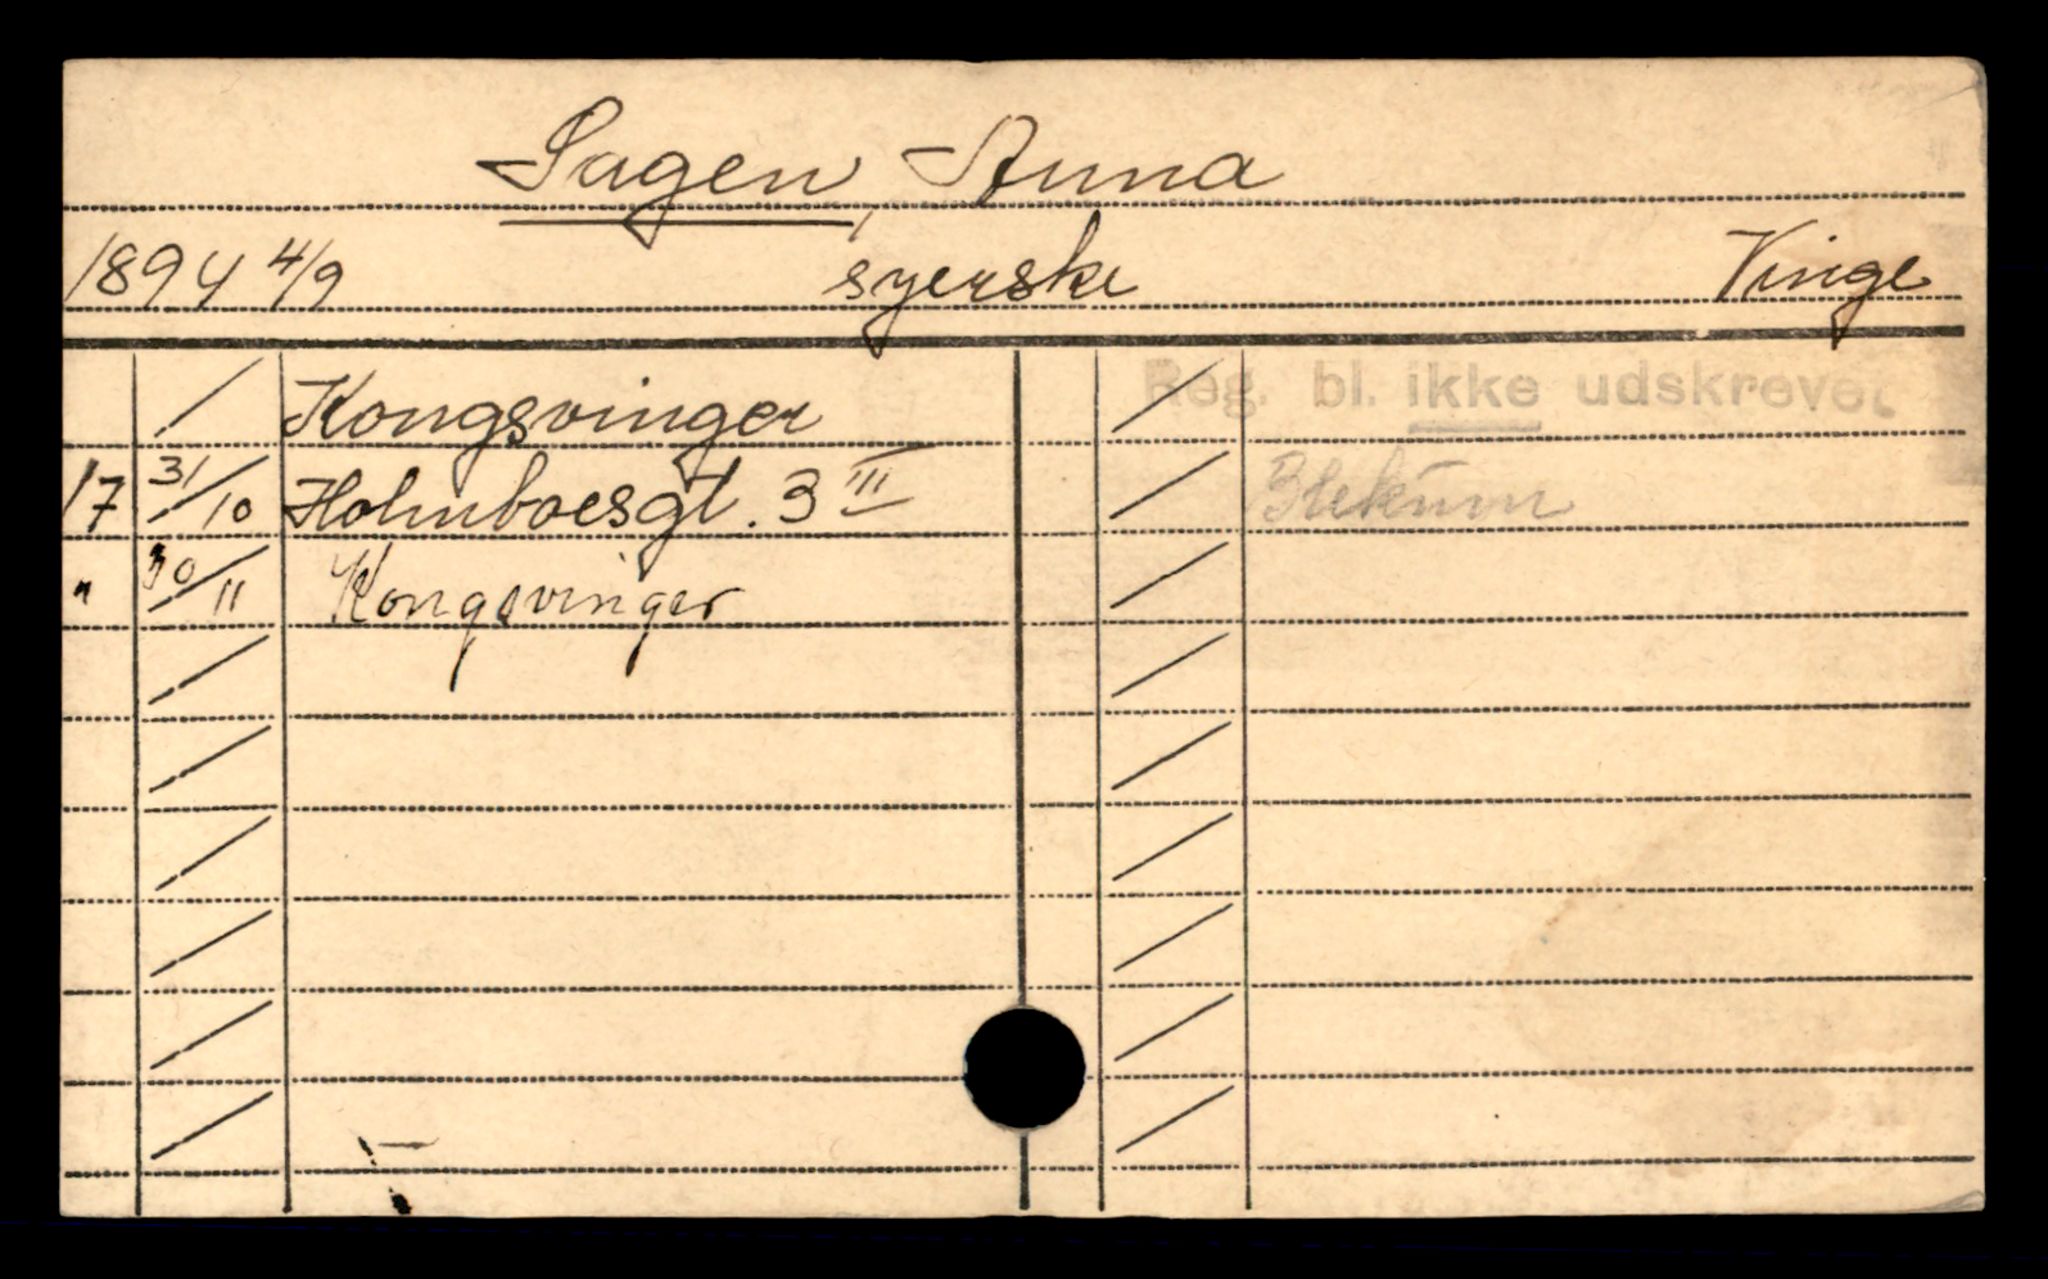 Sagen, Anna
1894 4/9 syerske Vinge
Kongsvinger
17 31/10 Holmboesgt. 3 III
" 30/11 Kongsvinger
Reg. bl. ikke udskrevet